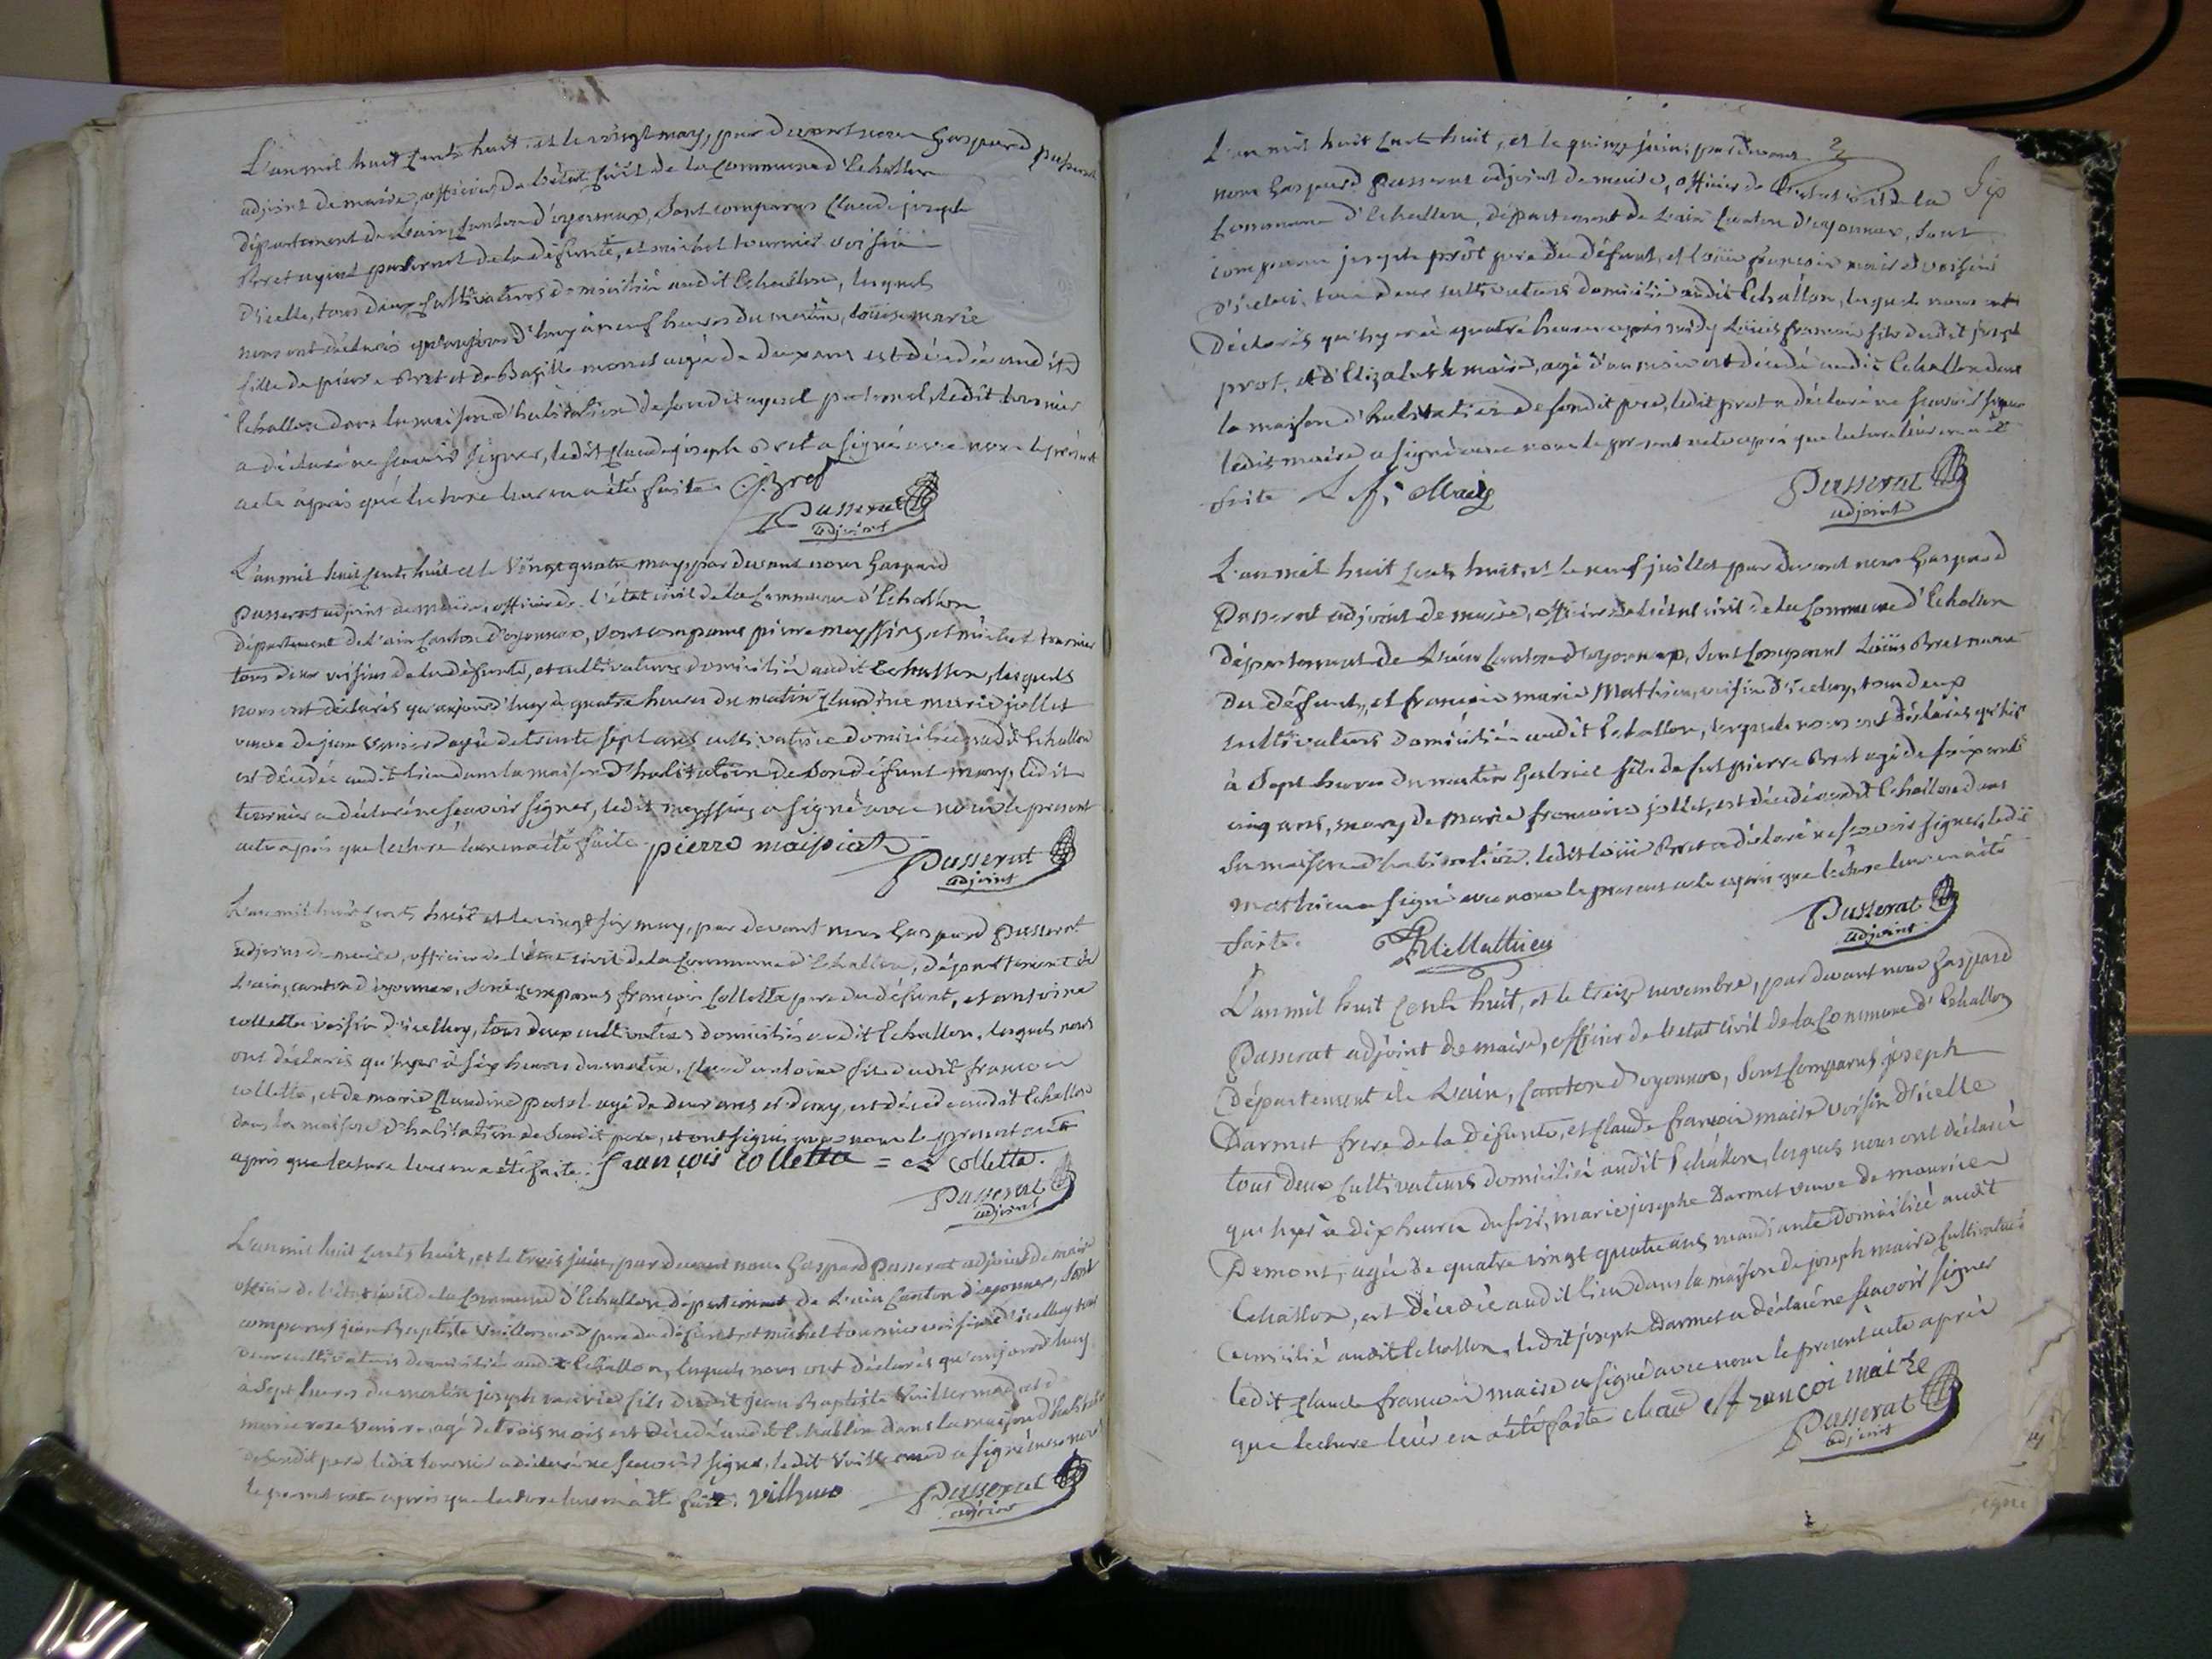 L'an mil huit cents huit et le vingt may, par devant nous Gaspard Passerat
adjoint de maire, officier de l'état civil de la Commune d'Echallon
département de Lain, Canton d'oyonnax, Sont comparus Claude joseph
Bret ayeul paternel de la défunte, et michel tournier voisin
d'icelle, tous deux cultivateurs domicilié audit Echallon, lesquels
nous ont déclarés qu'aujourd'huy à neuf heures du matin, Louise marie
fille de pierre Bret et de Basille monet agée de deux ans est décédée audit
Echallon dans la maison d'habitation de son dit ayeul paternel, ledit tournier
a déclaré ne scavoir signer, ledit Claude joseph Bret a signé avec nous le présent
acte après que lecture leur en a été faite. Bret
Passerat
adjoint
L'an mil huit cents huit et le Vingt quatre may, par devant nous Gaspard
Passerat adjoint de maire, officier de l'état civil de la Commune d'Echallon
département de L'ain Canton d'oyonnax, Sont comparus pierre meyssiaz et michel tournier
tous deux voisins de la défunte, et cultivateurs domicilié audit Echallon, lesquels
nous ont déclarés qu'aujourd'huy à quatre heures du matin Claudine marie jollet
veuve de jean agée de trente sept ans cultivatrice domiciliée audit Echallon
est décédée audit lieu dans la maison d'habitation de Son défunt mary, ledit
tournier a déclaré ne scavoir signer, ledit meyssiaz a signé avec nous le present
acte après que lecture leur en a été faite. pierre maisiat
Passerat
adjoint
L'an mil huit cents huit et le vingt six may, par devant nous Gaspard Passerat
adjoint de maire, officier de l'état civil de la Commune d'Echallon, département de
L'ain, canton d'oyonnax, Sont comparus françois Colletta pere du défunt, et antoine
colletta voisin d'icelluy, tous deux cultivateurs domiciliés audit Echallon, lesquels nous
ont déclarés qu'hyer à six heures du matin, Claude antoine fils dudit francois
colletta, et de marie Claudine agé de deux ans et demy, est décédé audit Echallon
dans la maison d'habitation de Son dit pere, et ont signés avec nous le present acte
après que lecture leur en a été faite. françois Colletta = Colletta.
Passerat
adjoint
L'an mil huit cents huit, et le trois juin, par devant nous Gaspard Passerat adjoint de maire
officier de l'état civil de la Commune d'Echallon département de L'ain Canton d'oyonnax, Sont
comparus jean Baptiste Vuillermod pere du défunt, et michel tournier voisin d'icelluy tous
deux cultivateurs domiciliés audit Echallon, lesquels nous ont déclarés qu'aujourd'huy
à Sept heures du matin joseph marie fils dudit jean Baptiste Vuillermod et de
marie rose agé de trois mois est décédé audit Echallon dans la maison d'habitation
de Sondit pere, ledit tournier a déclaré ne scavoir signer, ledit Vuillermod a signé avec nous
le present acte après que lecture leur en a été faite.
Passerat
adjoint
2
Six
L'an mil huit cent huit, et le quinze juin, par devant
nous Gaspard Passerat adjoint de maire, officier de l'état civil de la
Commune d'Echallon, département de L'ain Canton d'oyonnax, Sont
comparus joseph prôt pere du défunt, et Louis françois maire voisin
d'icelui, tous deux cultivateurs domicilié audit Echallon, lesquels nous ont
déclarés qu'hyer à quatre heures après midy Louis francois fils dudit joseph
prot, et d'Elizabeth maire, agé d'un mois est décédé audit Echallon dans
la maison d'habitation de sondit pere, ledit prot a déclaré ne scavoir signer
ledit maire a signé avec nous le present acte après que lecture leur en a été
faite L. f. Maire
Passerat
adjoint
L'an mil huit cents huit, et le neuf juillet par devant nous Gaspard
Passerat adjoint de maire, officier de l'état civil de la Commune d'Echallon
département de L'ain Canton d'oyonnax, Sont Comparus Louis Bret neveu
du défunt, et francois marie Mathieu, voisin d'icelluy, tous deux
cultivateurs domicilié audit Echallon, lesquels nous ont déclarés qu'hier
à Sept heures du matin Gabriel fils de fut pierre Bret agé de soixante
cinq ans, mary de Marie francoise jollet, est décédé audit Echallon dans
Sa maison d'habitation. ledit Louis Bret a déclaré ne scavoir signer, ledit
mathieu a signé avec nous le present acte après que lecture leur en a été
faite. Mathieu
Passerat
adjoint
L'an mil huit cents huit, et le treize novembre, par devant nous Gaspard
Passerat adjoint de maire, officier de l'état civil de la Commune d'Echallon
Département de L'ain, Canton d'oyonnax, Sont Comparus joseph
Darmet frere de la défunte, et Claude francois maire voisin d'icelle
tous deux Cultivateurs domicilié audit Echallon, lesquels nous ont déclaré
que hyer à dix heures du soir, marie josephe Darmet veuve de maurice
Demont, agée de quatre vingt quatre ans mandiante domiciliée audit
Echallon, est décédée audit lieu dans la maison de joseph maire Cultivateur
domicilié audit Echallon, ledit joseph Darmet a déclaré ne scavoir signer
ledit Claude francois maire a signé avec nous le present acte après
que lecture leur en a été faite claud francoi maire
Passerat
adjoint